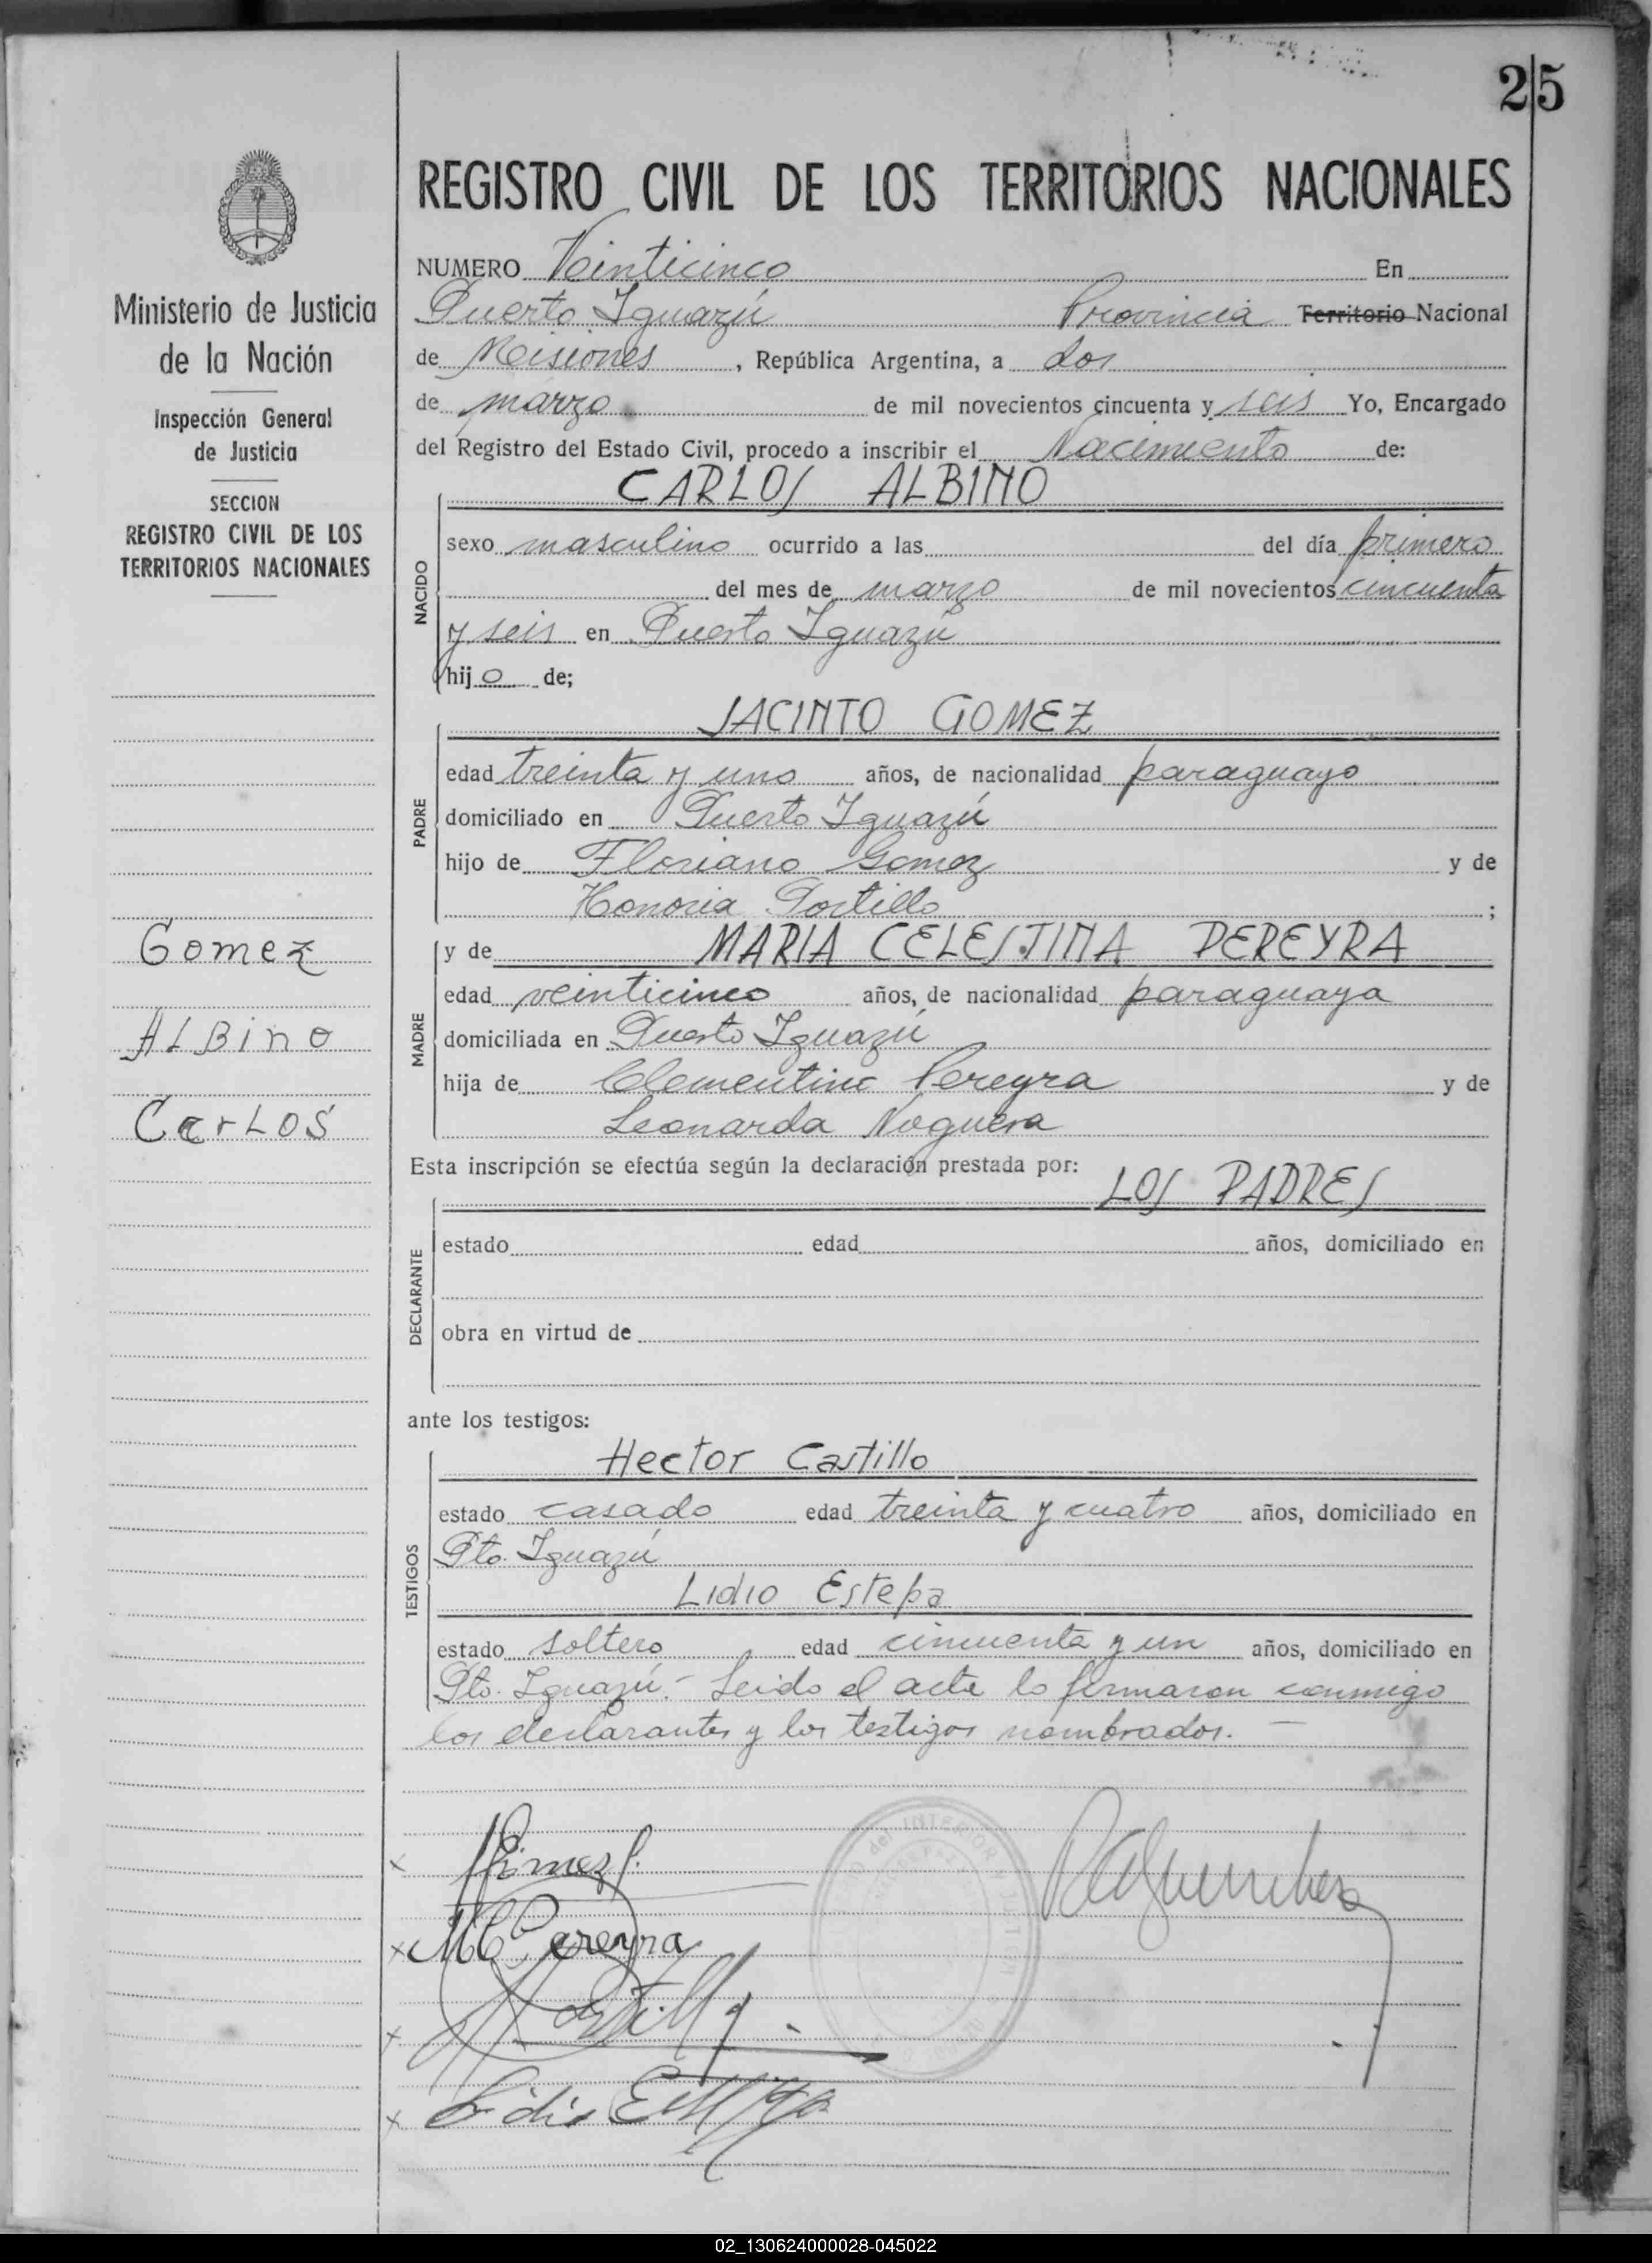 25
REGISTRO CIVIL DE LOS TERRITORIOS NACIONALES
Ministerio de Justicia
de la Nación
Inspección General
de Justicia
SECCION
REGISTRO CIVIL DE LOS
TERRITORIOS NACIONALES
Gomez
ALBino
CarLos
NUMERO Veinticinco En
Puerto Iguazú Provincia Territorio Nacional
de Misiones, República Argentina, a dos
de marzo de mil novecientos cincuenta y seis Yo, Encargado
del Registro del Estado Civil, procedo a inscribir el Nacimiento de:
NACIDO
CARLOS ALBINO
sexo masculino ocurrido a las del día primero
del mes de marzo de mil novecientos cincuenta
y seis en Puerto Iguazú
hijo de;
PADRE
JACINTO GOMEZ
edad treinta y uno años, de nacionalidad paraguayo
domiciliado en Puerto Iguazú
hijo de Floriano Gomez y de
Honoria Portillo ;
MADRE
y de MARIA CELESTINA PEREYRA
edad veinticinco años, de nacionalidad paraguaya
domiciliada en Puerto Iguazú
hija de Clementino Pereyra y de
Leonarda Noguera
Esta inscripción se efectúa según la declaración prestada por:
DECLARANTE
LOS PADRES
estado edad años, domiciliado en
obra en virtud de
ante los testigos:
TESTIGOS
Hector Castillo
estado casado edad treinta y cuatro años, domiciliado en
Pto. Iguazú
Lidio Estepa
estado soltero edad cincuenta y un años, domiciliado en
Pto. Iguazú.- Leido el acta lo firmaron conmigo
los declarantes y los testigos nombrados. —
x Gómez J.
x M C Pereyra
x Castillo
x Lidio Estepa
02_130624000028-045022